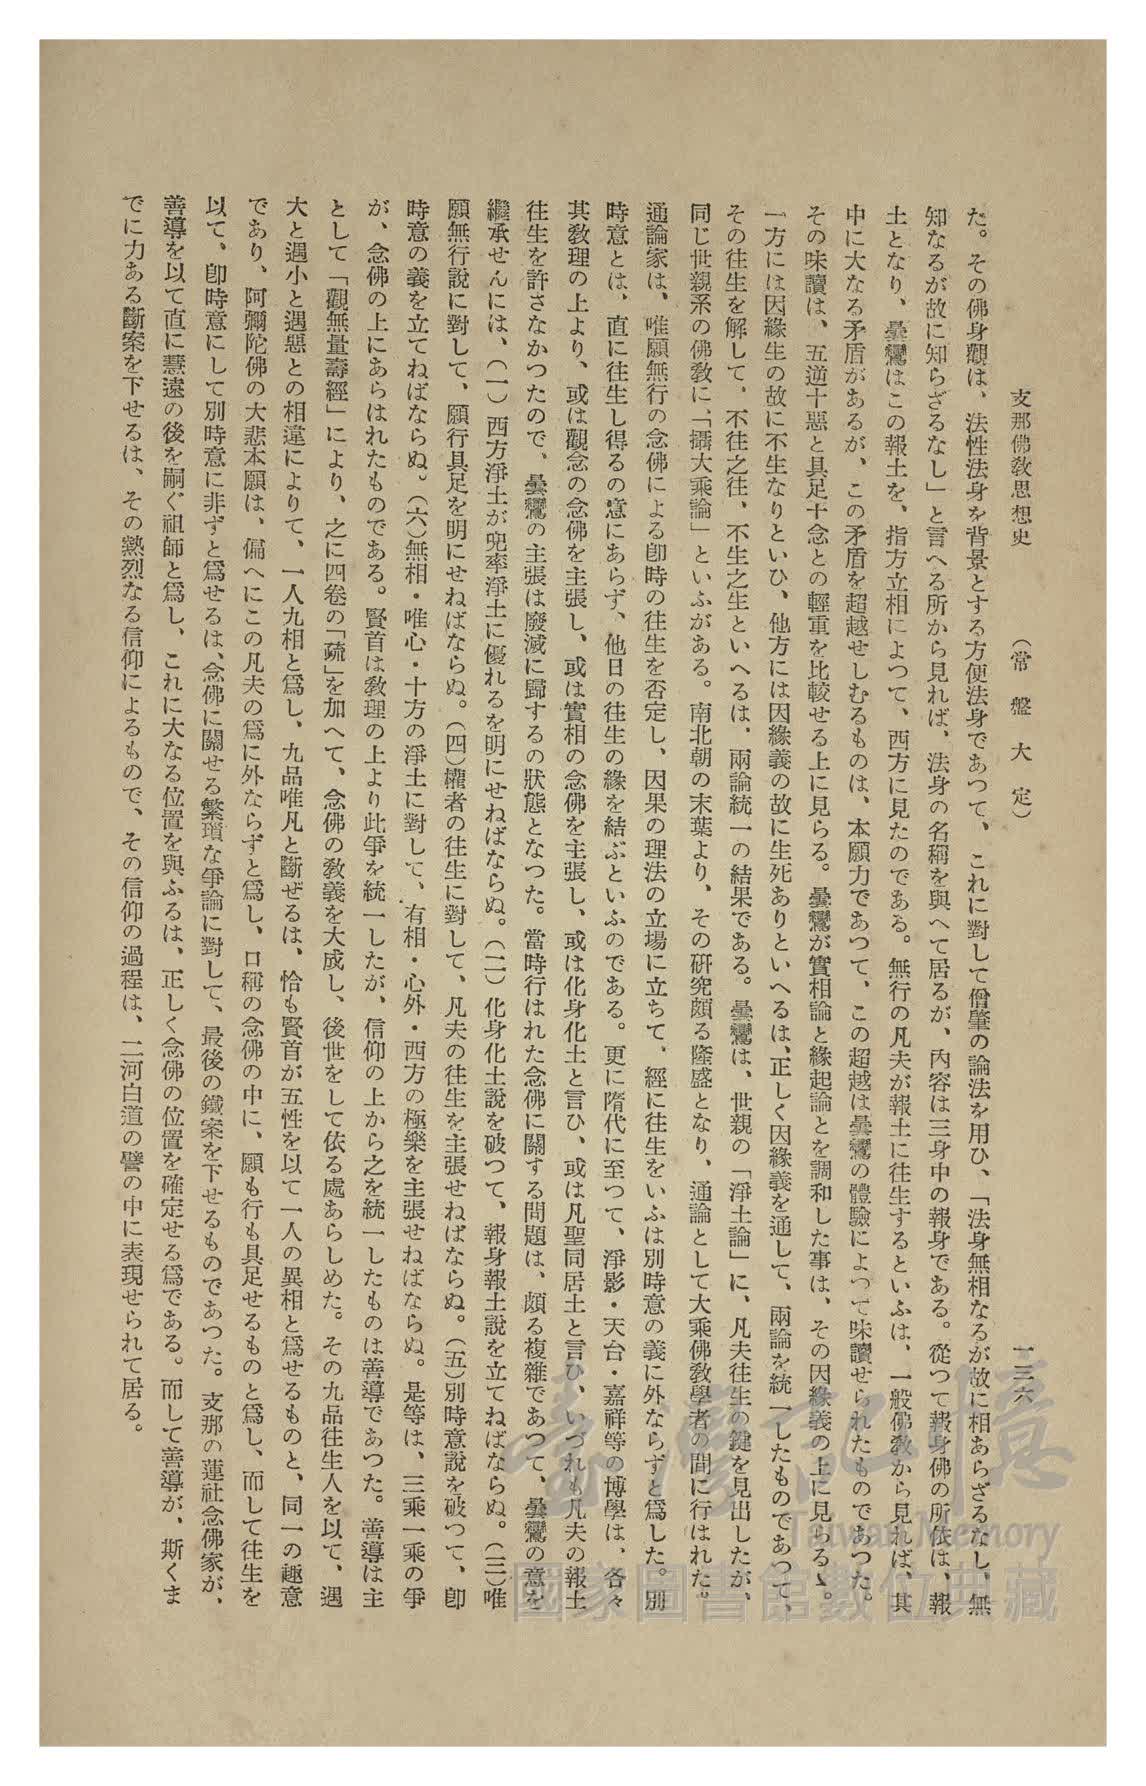 支那佛敎思想史　（常盤大定）　一三六
た。その佛身觀は、法性法身を背景とする方便法身であつて、これに對して僧肇の論法を用ひ、「法身無相なるが故に相あらざるなし、無
知なるが故に知らざるなし」と言へる所から見れば、法身の名稱を與へて居るが、內容は三身中の報身である。從つて報身佛の所依は、報
土となり、曇鸞はこの報土を、指方立相によつて、西方に見たのである。無行の凡夫が報土に往生するといふは、一般佛敎から見れば、其
中に大なる矛盾があるが、この矛盾を超越せしむるものは、本願力であつて、この超越は曇鸞の體驗によつて味讀せられたものであつた。
その味讀は、五逆十惡と具足十念との輕重を比較せる上に見らる。曇鸞が實相論と緣起論とを調和した事は、その因緣義の上に見らるゝ。
一方には因緣生の故に不生なりといひ、他方には因緣義の故に生死ありといへるは、正しく因緣義を通して、兩論を統一したものであつて、
その往生を解して、不往之往、不生之生といへるは、兩論統一の結果である。曇鸞は、世親の「淨土論」に、凡夫往生の鍵を見出したが、
同じ世親系の佛敎に、「攝大乘論」といふがある。南北朝の末葉より、その硏究頗る隆盛となり、通論として大乘佛敎學者の間に行はれた。
通論家は、唯願無行の念佛による卽時の往生を否定し、因果の理法の立場に立ちて、經に往生をいふは別時意の義に外ならずと爲した。別
時意とは、直に往生し得るの意にあらず、他日の往生の緣を結ぶといふのである。更に隋代に至つて、淨影・天台・嘉祥等の博學は、各々
其敎理の上より、或は觀念の念佛を主張し、或は實相の念佛を主張し、或は化身化土と言ひ、或は凡聖同居土と言ひ、いづれも凡夫の報土
往生を許さなかつたので、曇鸞の主張は廢滅に歸するの狀態となつた。當時行はれた念佛に關する問題は、頗る複雜であつて、曇鸞の意を
繼承せんには、（一）西方淨土が兜率淨土に優れるを明にせねばならぬ。（二）化身化土說を破つて、報身報土說を立てねばならぬ。（三）唯
願無行說に對して、願行具足を明にせねばならぬ。（四）權者の往生に對して、凡夫の往生を主張せねばならぬ。（五）別時意說を破つて、卽
時意の義を立てねばならぬ。（六）無相・唯心・十方の淨土に對して、有相・心外・西方の極樂を主張せねばならぬ。是等は、三乘一乘の爭
が、念佛の上にあらはれたものである。賢首は敎理の上より此爭を統一したが、信仰の上から之を統一したものは善導であつた。善導は主
として「觀無量壽經」により、之に四卷の「疏」を加へて、念佛の敎義を大成し、後世をして依る處あらしめた。その九品往生人を以て、遇
大と遇小と遇惡との相違によりて、一人九相と爲し、九品唯凡と斷ぜるは、恰も賢首が五性を以て一人の異相と爲せるものと、同一の趣意
であり、阿彌陀佛の大悲本願は、偏へにこの凡夫の爲に外ならずと爲し、口稱の念佛の中に、願も行も具足せるものと爲し、而して往生を
以て、卽時意にして別時意に非ずと爲せるは、念佛に關せる繁瑣な爭論に對して、最後の鐵案を下せるものであつた。支那の蓮社念佛家が、
善導を以て直に慧遠の後を嗣ぐ祖師と爲し、これに大なる位置を與ふるは、正しく念佛の位置を確定せる爲である。而して善導が、斯くま
でに力ある斷案を下せるは、その熱烈なる信仰によるもので、その信仰の過程は、二河白道の譬の中に表現せられて居る。
臺灣記憶
Taiwan Memory
國家圖書館數位典藏